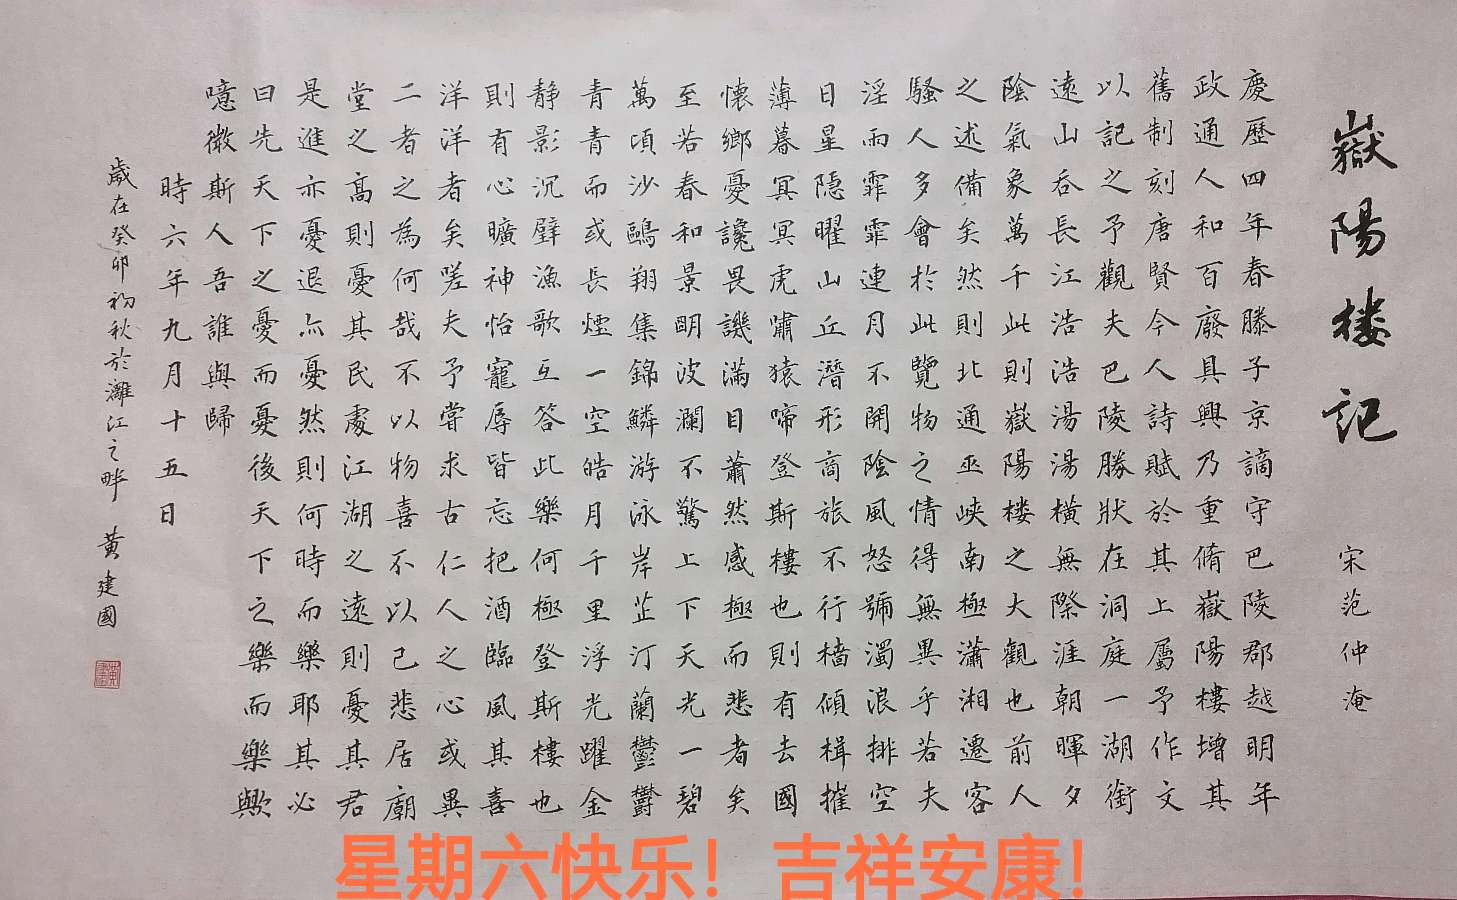 嶽陽楼記
宋范仲淹
慶歷四年春滕子京謫守巴陵郡越明年
政通人和百廢具興乃重脩嶽陽樓增其
舊制刻唐賢今人詩賦於其上屬予作文
以記之予觀夫巴陵勝狀在洞庭一湖銜
遠山吞長江浩浩湯湯橫無際涯朝暉夕
陰氣象萬千此則嶽陽楼之大觀也前人
之述備矣然則北通巫峽南極瀟湘遷客
騷人多會於此覽物之情得無異乎若夫
淫雨霏霏連月不開陰風怒號濁浪排空
日星隱曜山丘潛形商旅不行檣傾楫摧
薄暮冥冥虎嘯猿啼登斯樓也則有去國
懷鄉憂讒畏譏滿目蕭然感極而悲者矣
至若春和景明波瀾不驚上下天光一碧
萬頃沙鷗翔集錦鱗游泳岸芷汀蘭鬱鬱
青青而或長煙一空皓月千里浮光躍金
静影沉璧漁歌互答此樂何極登斯樓也
則有心曠神怡寵辱皆忘把酒臨風其喜
洋洋者矣嗟夫予嘗求古仁人之心或異
二者之為何哉不以物喜不以己悲居廟
堂之高則憂其民處江湖之遠則憂其君
是進亦憂退亦憂然則何時而樂耶其必
曰先天下之憂而憂後天下之樂而樂歟
噫微斯人吾誰與歸
時六年九月十五日
歲在癸卯初秋於灕江之畔 黃建國
星期六快乐！吉祥安康！